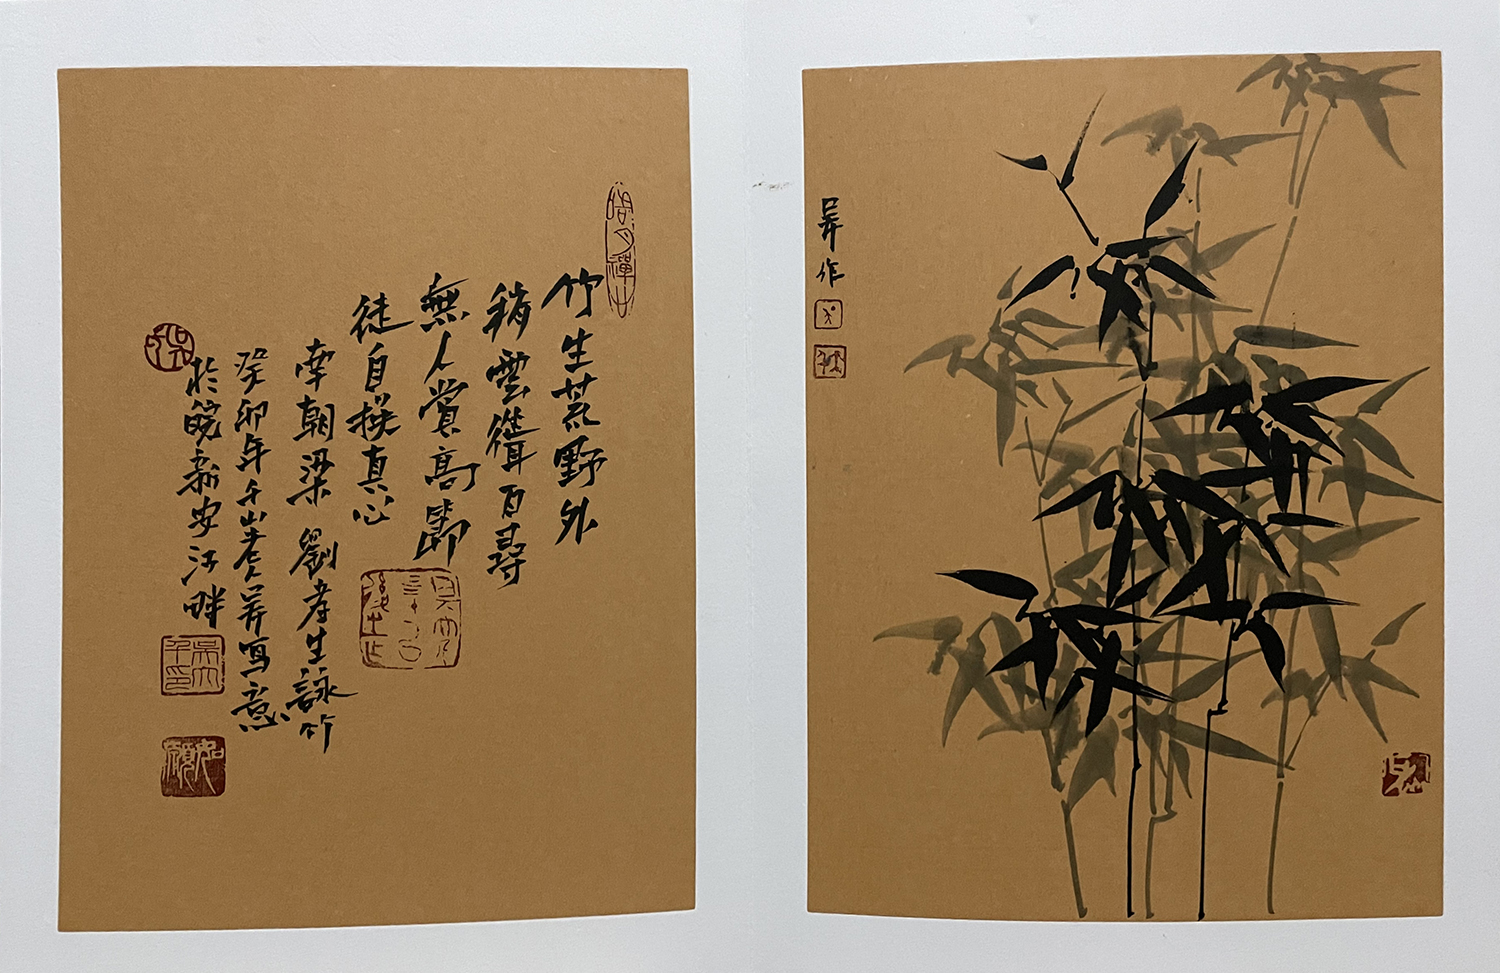 竹生荒野外
稍雲聳百尋
無人賞高節
徒自真心
南朝梁 劉孝生詠竹
癸卯年千山老人寫意
於皖新安江畔
如願
作